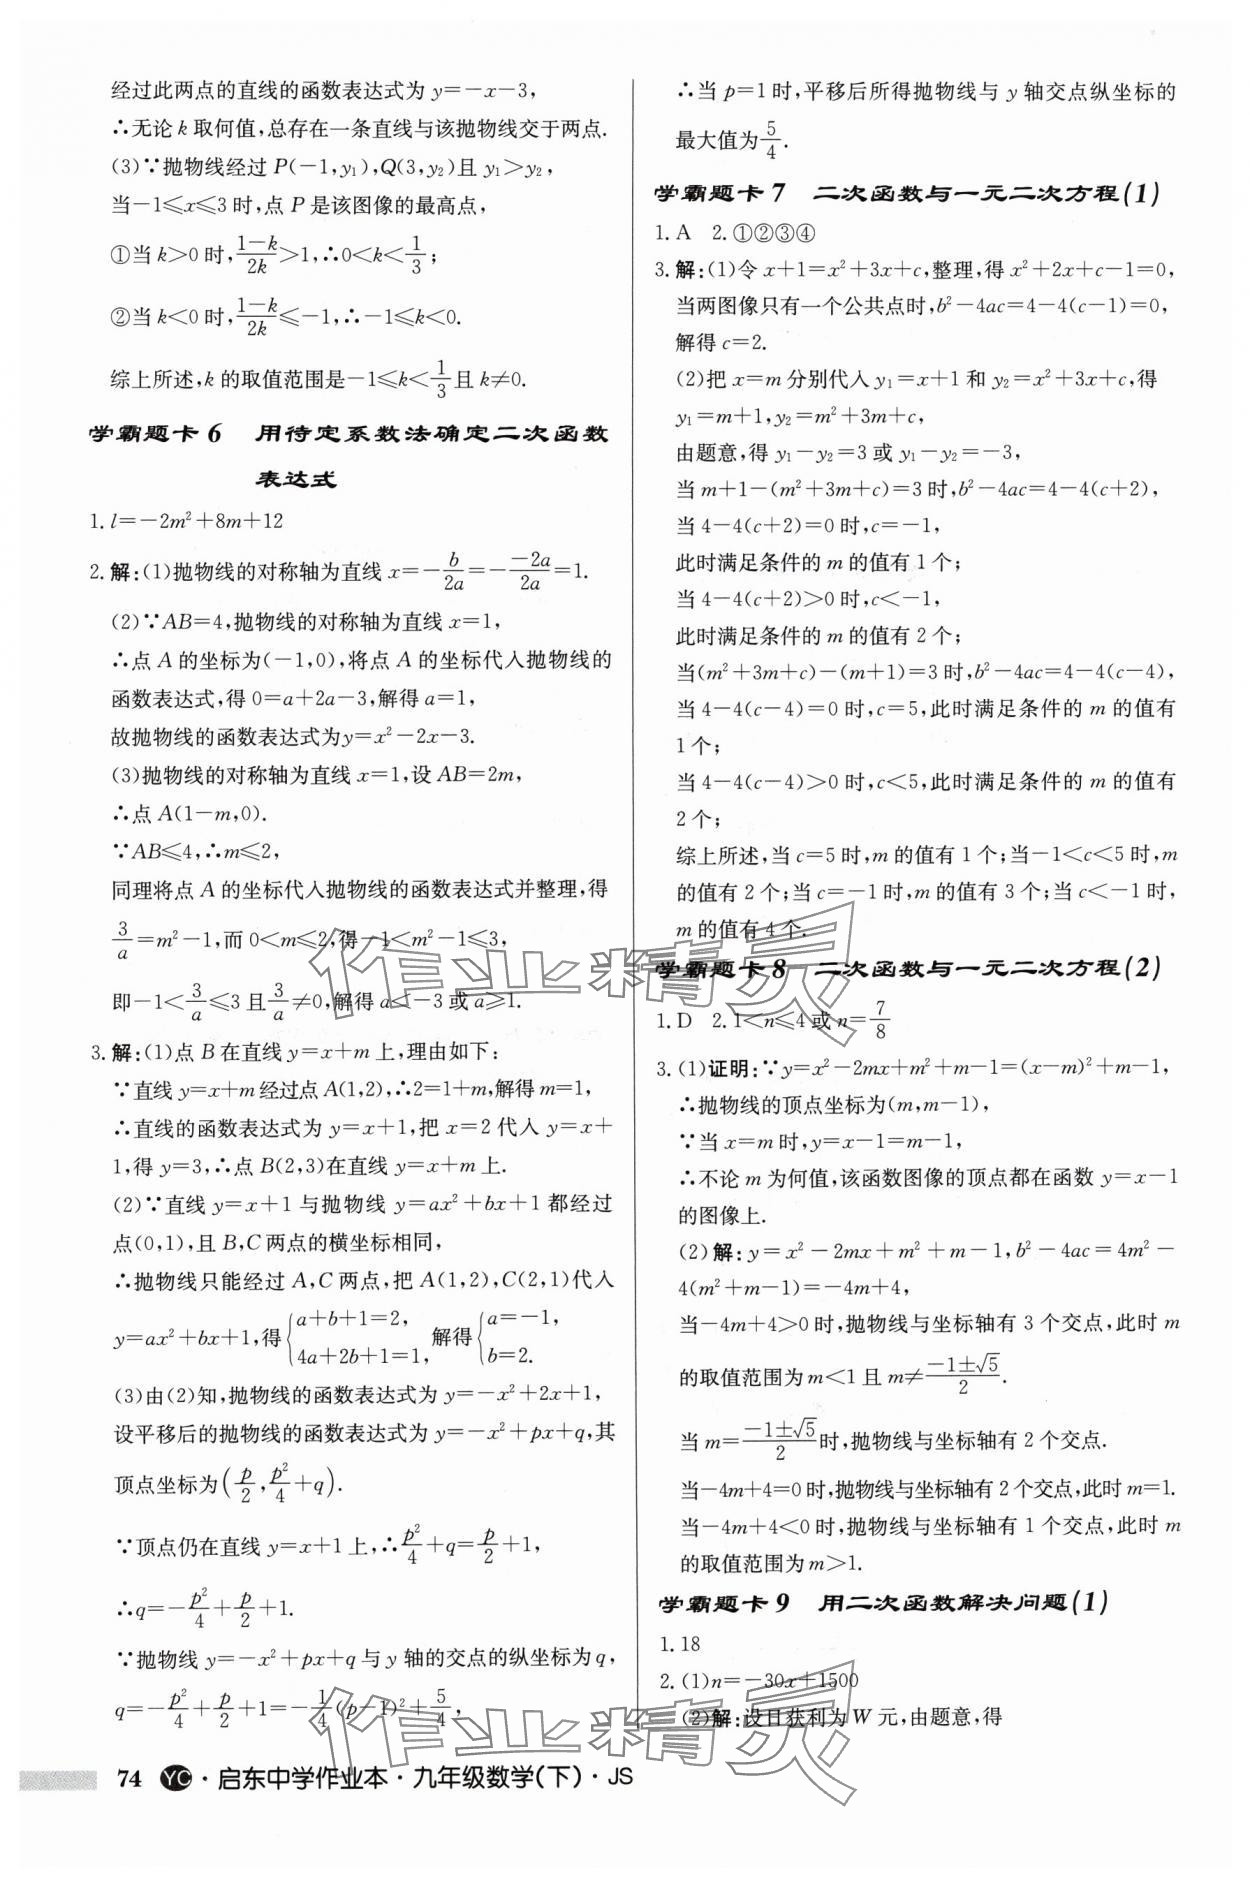 经过此两点的直线的函数表达式为 y=-x-3,
∴无论 k 取何值,总存在一条直线与该抛物线交于两点.
(3)∵抛物线经过 P(-1,y₁),Q(3,y₂)且 y₁>y₂,
当-1≤x≤3 时,点 P 是该图像的最高点,
①当 k>0 时,(1-k)/(2k)>1,∴0<k<1/3;
②当 k<0 时,(1-k)/(2k)≤-1,∴-1≤k<0.
综上所述,k 的取值范围是-1≤k<1/3且 k≠0.
学霸题卡 6 用待定系数法确定二次函数
表达式
1. l=-2m²+8m+12
2. 解:(1)抛物线的对称轴为直线 x=-b/(2a)=-(-2a)/(2a)=1.
(2)∵AB=4,抛物线的对称轴为直线 x=1,
∴点 A 的坐标为(-1,0),将点 A 的坐标代入抛物线的
函数表达式,得 0=a+2a-3,解得 a=1,
故抛物线的函数表达式为y=x²-2x-3.
(3)抛物线的对称轴为直线 x=1,设 AB=2m,
∴点 A(1-m,0).
∵AB≤4,∴m≤2,
同理将点 A 的坐标代入抛物线的函数表达式并整理,得
3/a=m²-1,而 0<m≤2,得-1<m²-1≤3,
即-1<3/a≤3 且3/a≠0,解得 a<-3 或 a≥1.
3. 解:(1)点 B 在直线 y=x+m 上,理由如下:
∵直线 y=x+m 经过点 A(1,2),∴2=1+m,解得 m=1,
∴直线的函数表达式为 y=x+1,把 x=2 代入 y=x+
1,得 y=3,∴点 B(2,3)在直线 y=x+m 上.
(2)∵直线 y=x+1 与抛物线 y=ax²+bx+1 都经过
点(0,1),且 B,C 两点的横坐标相同,
∴抛物线只能经过 A,C 两点,把 A(1,2),C(2,1)代入
y=ax²+bx+1,得{a+b+1=2, 4a+2b+1=1, 解得{a=-1, b=2.
(3)由(2)知,抛物线的函数表达式为 y=-x²+2x+1,
设平移后的抛物线的函数表达式为 y=-x²+px+q,其
顶点坐标为(p/2,p²/4+q).
∵顶点仍在直线 y=x+1 上,∴p²/4+q=p/2+1,
∴q=-p²/4+p/2+1.
∵抛物线 y=-x²+px+q 与 y 轴的交点的纵坐标为 q,
q=-p²/4+p/2+1=-1/4(p-1)²+5/4,
∴当 p=1 时,平移后所得抛物线与 y 轴交点纵坐标的
最大值为5/4.
学霸题卡 7 二次函数与一元二次方程(1)
1. A 2. ①②③④
3. 解:(1)令 x+1=x²+3x+c,整理,得 x²+2x+c-1=0,
当两图像只有一个公共点时,b²-4ac=4-4(c-1)=0,
解得 c=2.
(2)把 x=m 分别代入 y₁=x+1 和 y₂=x²+3x+c,得
y₁=m+1,y₂=m²+3m+c,
由题意,得 y₁-y₂=3 或 y₁-y₂=-3,
当 m+1-(m²+3m+c)=3 时,b²-4ac=4-4(c+2),
当 4-4(c+2)=0 时,c=-1,
此时满足条件的 m 的值有 1 个;
当 4-4(c+2)>0 时,c<-1,
此时满足条件的 m 的值有 2 个;
当(m²+3m+c)-(m+1)=3 时,b²-4ac=4-4(c-4),
当 4-4(c-4)=0 时,c=5,此时满足条件的 m 的值有
1 个;
当 4-4(c-4)>0 时,c<5,此时满足条件的 m 的值有
2 个;
综上所述,当 c=5 时,m 的值有 1 个;当-1<c<5 时,m
的值有 2 个;当 c=-1 时,m 的值有 3 个;当 c<-1 时,
m 的值有 4 个.
学霸题卡 8 二次函数与一元二次方程(2)
1. D 2. 1<n≤4 或 n=7/8
3. (1)证明:∵y=x²-2mx+m²+m-1=(x-m)²+m-1,
∴抛物线的顶点坐标为(m,m-1),
∵当 x=m 时,y=x-1=m-1,
∴不论 m 为何值,该函数图像的顶点都在函数 y=x-1
的图像上.
(2)解:y=x²-2mx+m²+m-1,b²-4ac=4m²-
4(m²+m-1)=-4m+4,
当-4m+4>0 时,抛物线与坐标轴有 3 个交点,此时 m
的取值范围为 m<1 且 m≠(-1±√5)/2.
当 m=(-1±√5)/2时,抛物线与坐标轴有 2 个交点.
当-4m+4=0 时,抛物线与坐标轴有 2 个交点,此时 m=1.
当-4m+4<0 时,抛物线与坐标轴有 1 个交点,此时 m
的取值范围为 m>1.
学霸题卡 9 用二次函数解决问题(1)
1. 18
2. (1)n=-30x+1500
(2)解:设日获利为 W 元,由题意,得
作业精灵
作业精灵
74 YC·启东中学作业本·九年级数学(下)·JS